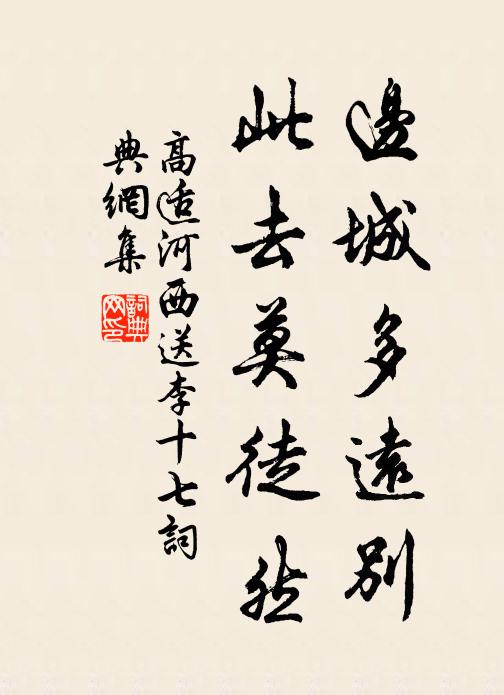 邊城多遠別
此去莫徒然
高適河西送李十七詞
典網集
詞典網印